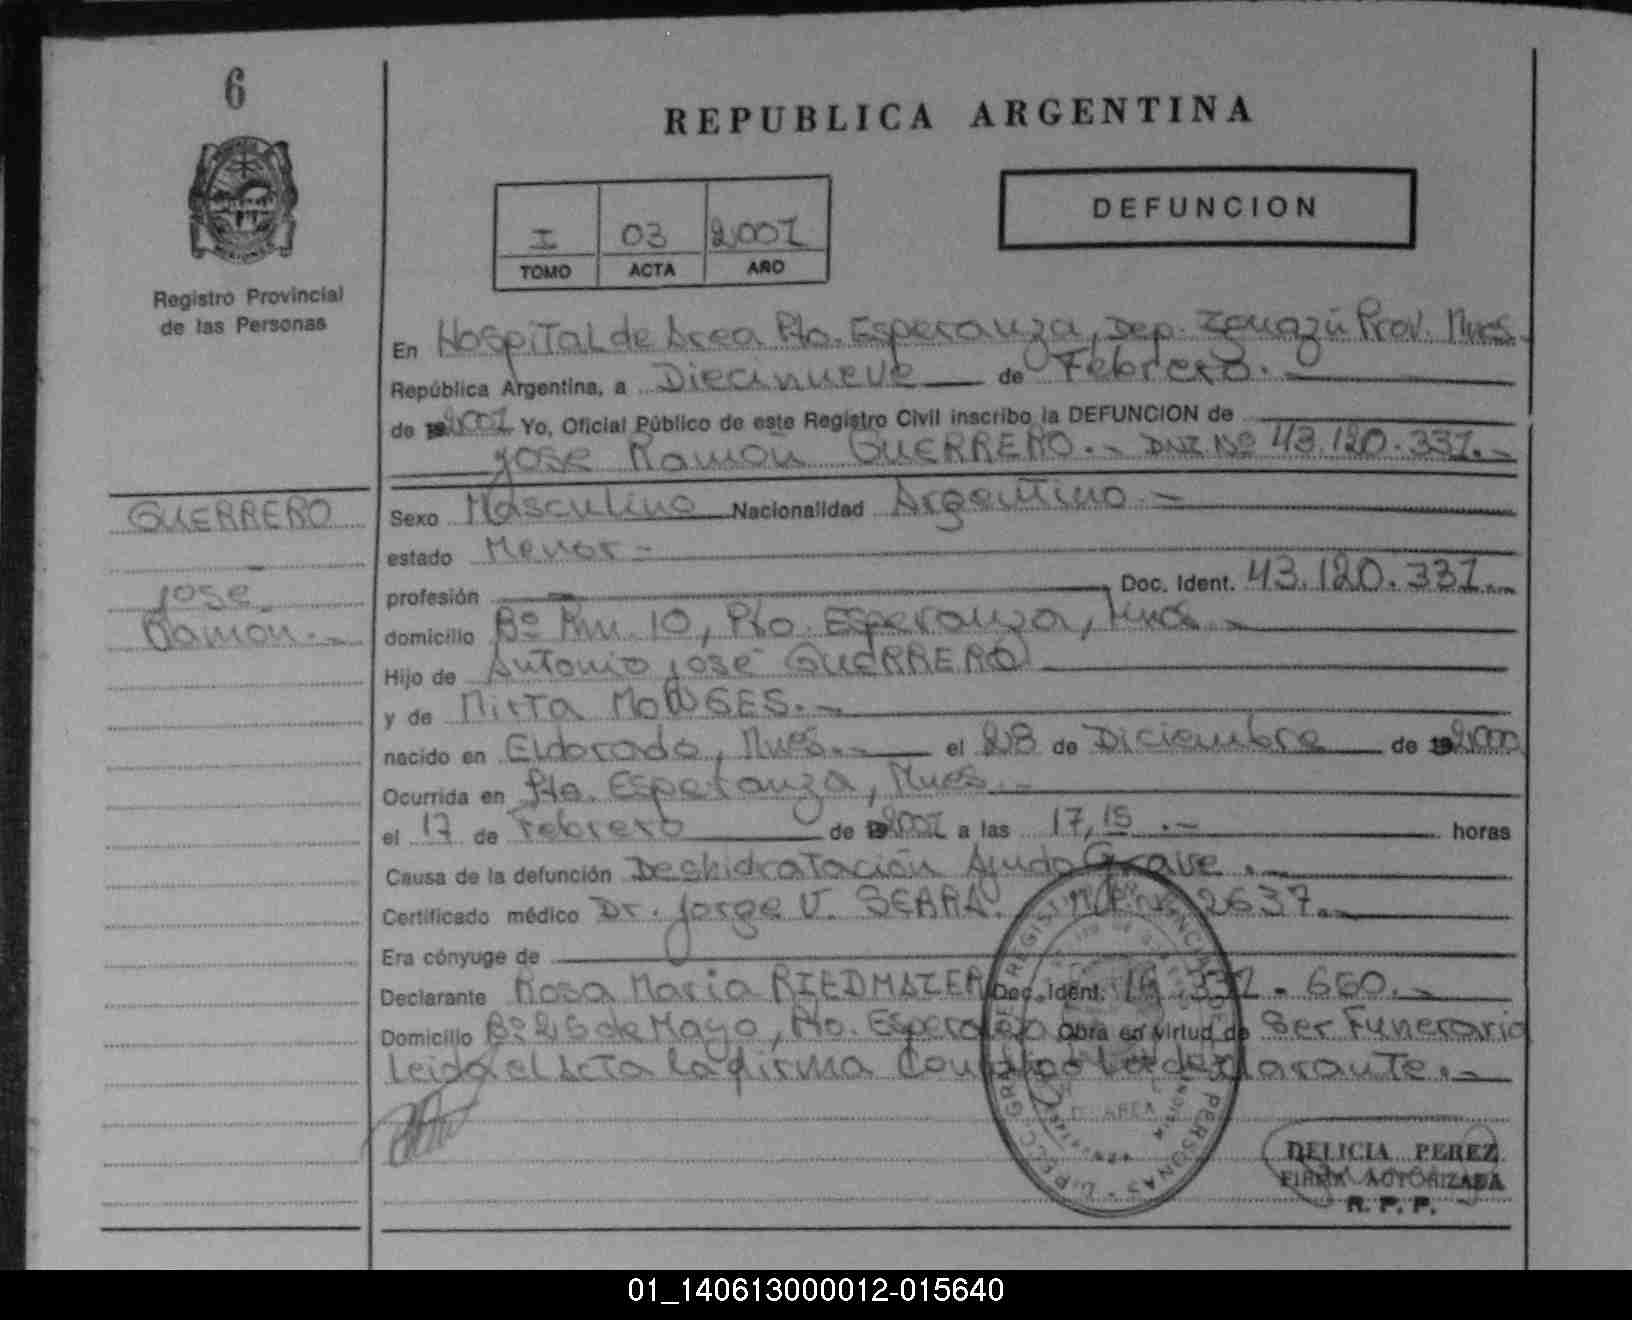 6
REPUBLICA ARGENTINA
DEFUNCION
I 03 2.001
TOMO ACTA AÑO
Registro Provincial
de las Personas
En Hospital de Area Pto. Esperanza, Dep. Iguazú Prov. Mnes.-
República Argentina, a Diecinueve de Febrero.
de 2001 Yo, Oficial Público de este Registro Civil inscribo la DEFUNCION de
José Ramón GUERRERO.- DNI Nº 43.120.331.-
GUERRERO
José
Ramón.-
Sexo Masculino Nacionalidad Argentino.-
estado Menor-
profesión Doc. Ident. 43.120.331.
domicilio Bº Km. 10, Pto. Esperanza, Mnes.-
Hijo de Antonio José GUERRERO
y de Mirta
nacido en Eldorado, Mnes.- el 28 de Diciembre de 2000
Ocurrida en Pto. Esperanza, Mnes.-
el 17 de Febrero de 2001 a las 17,15.- horas
Causa de la defunción Deshidratación Aguda Grave.-
Certificado médico Dr. Jorge V. SEARA. M.P. Nº 2637.-
Era cónyuge de
Declarante Rosa María Doc. Ident. 660.-
Domicilio Bº 25 de Mayo, Pto. Esperanza Obra en virtud de Ser Funerario
Leída el Acta la firma declarante.-
DELICIA PEREZ
FIRMA AUTORIZADA
R. P. P.
01_140613000012-015640